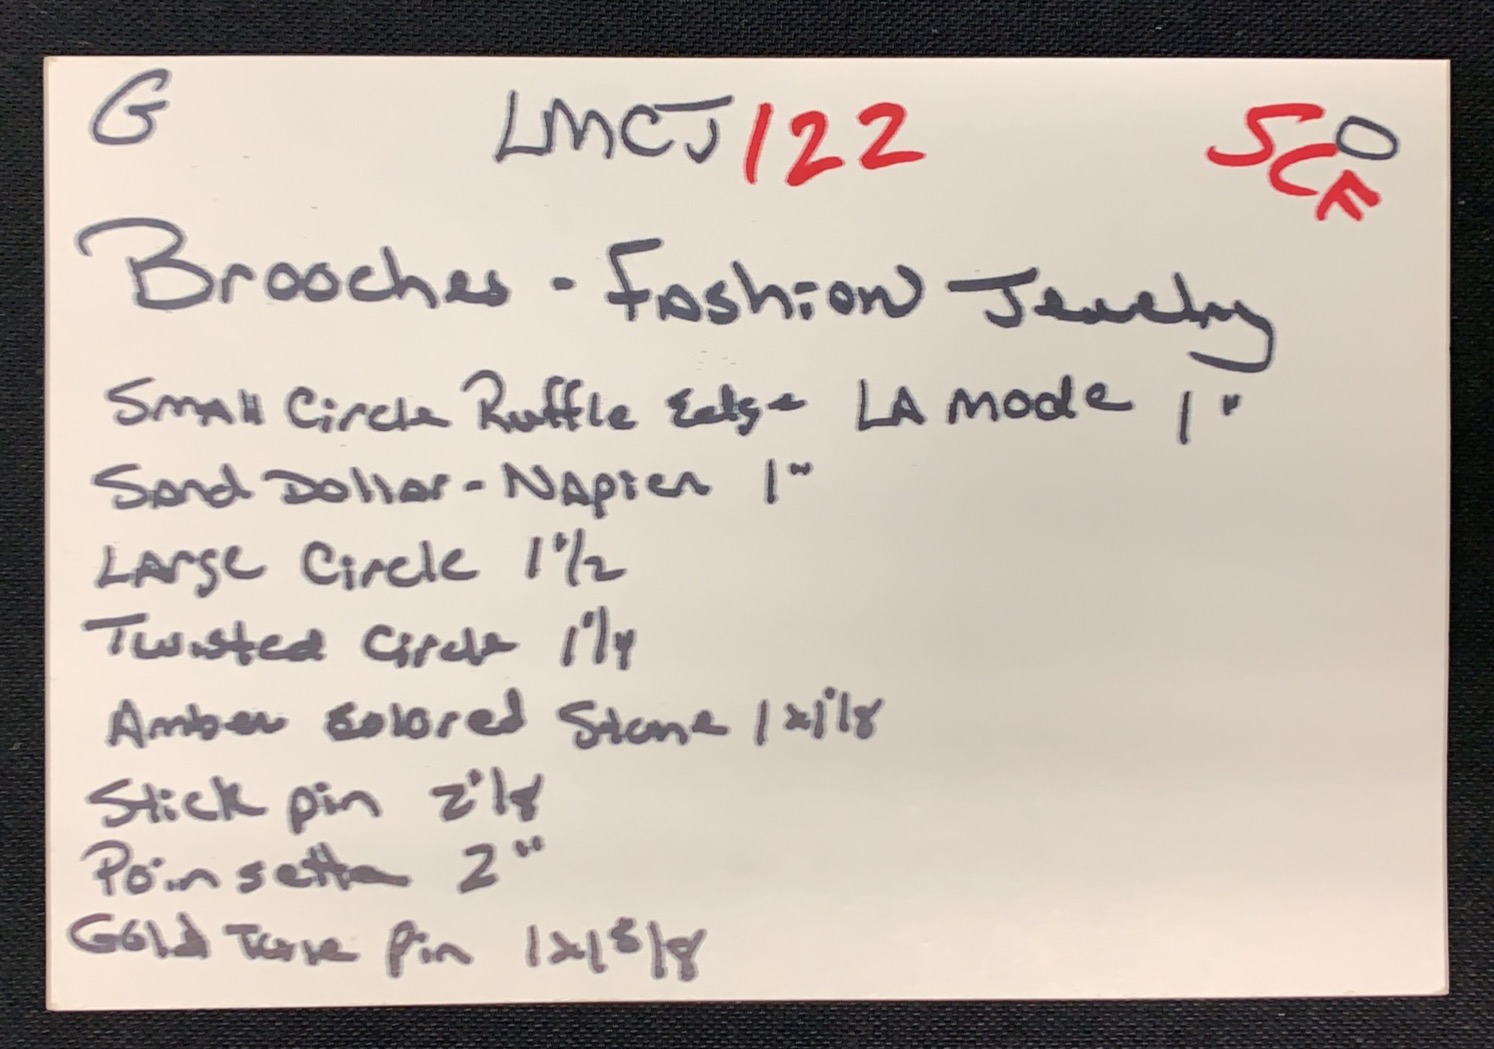 G LMCJ/122 SCF O
Brooches - Fashion Jewelry
Small Circle Ruffle Edge LA mode 1"
Sand Dollar - Napier 1"
Large Circle 1 1/2
Twisted Circle 1 1/4
Amber Colored Stone 1x1 1/8
Stick pin 2 1/8
Poinsetta 2"
Gold Tone Pin